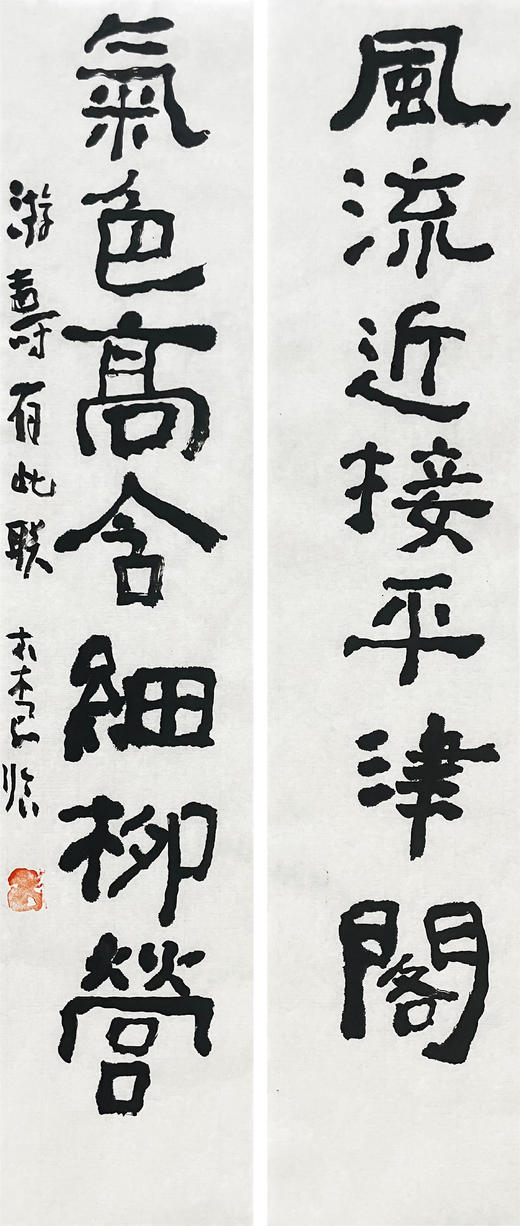 風流近接平津閣
氣色高含細柳營
游壽有此联
临